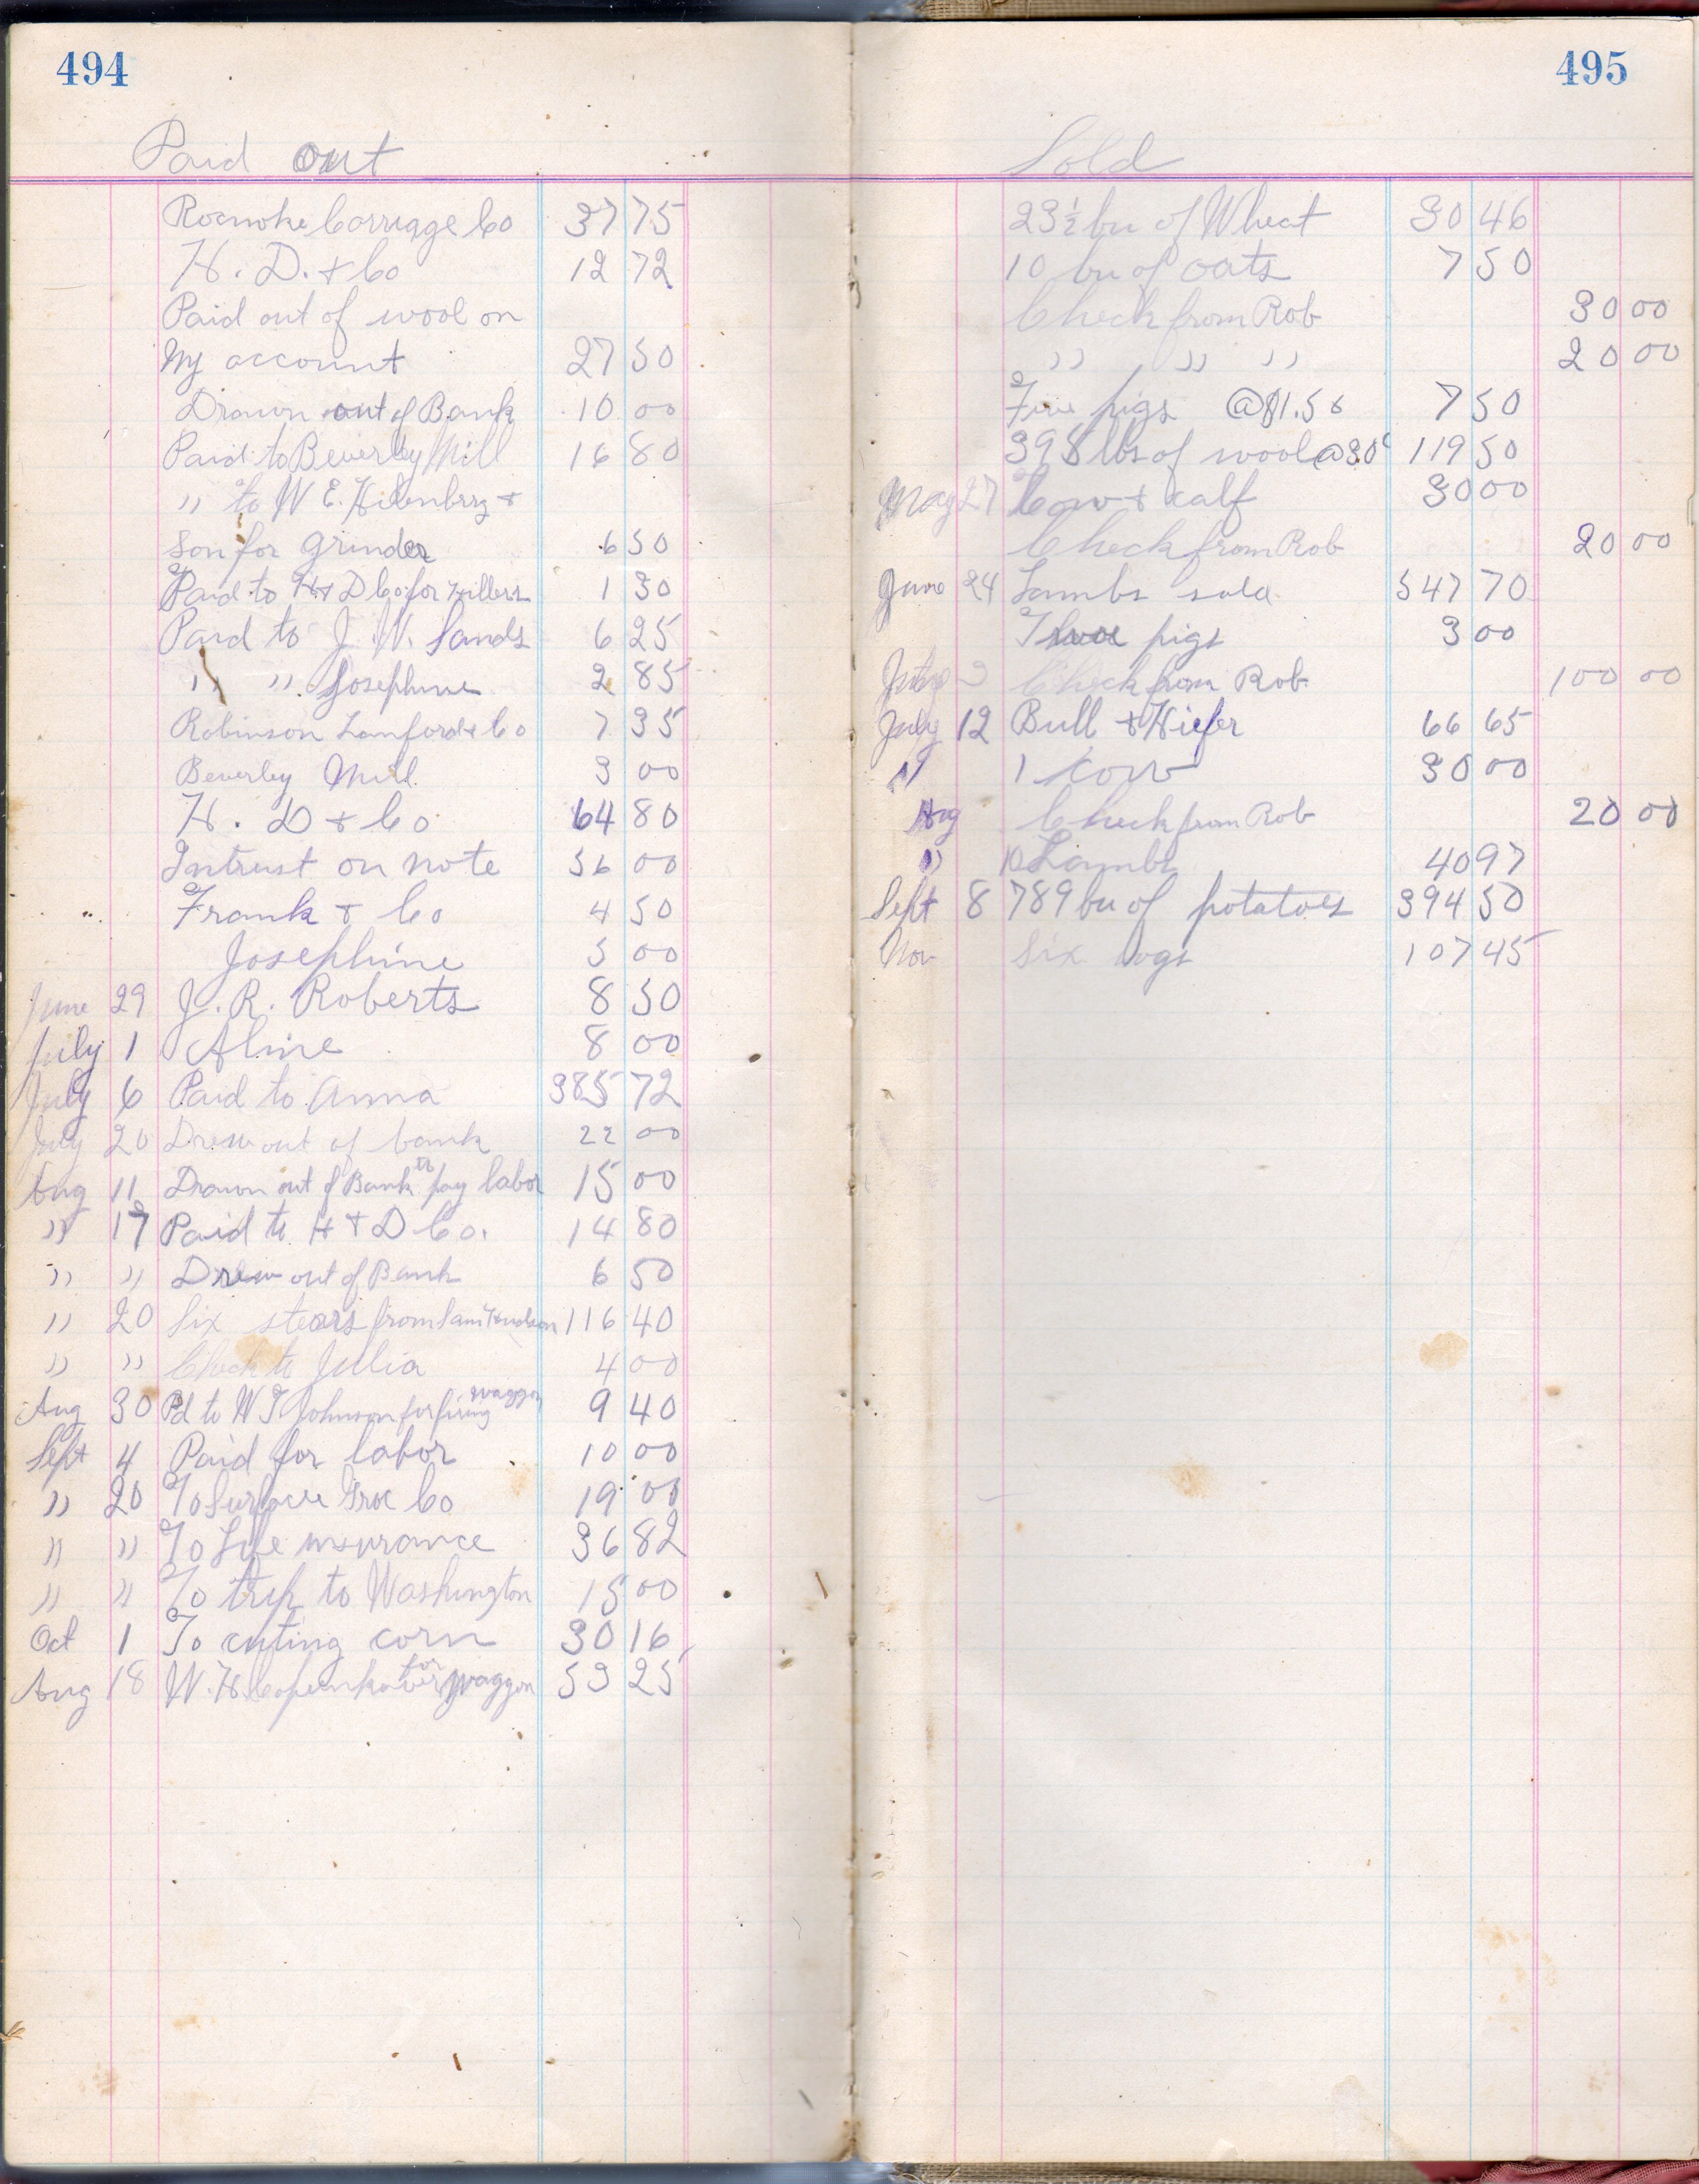 494
Paid out
Roanoke Carriage Co 37 75
H. D. & Co 12 72
Paid out of wool on
My account 27 50
Drawn out of Bank 10 00
Paid to Beverley Mill 16 80
" to W E. &
Son for Grinder 6 50
Paid to H & D Co for 1 30
Paid to J. W. Sands 6 25
" " Josephine 2 85
Robinson Lanford & Co 7 35
Beverley Mill 3 00
H. D & Co 64 80
Intrust on note 36 00
Frank & Co 4 50
Josephine 5 00
June 29 J. R. Roberts 8 50
July 1 Aline 8 00
July 6 Paid to Anna 385 72
July 20 Drew out of bank 22 00
Aug 11 Drawn out of Bank to pay labor 15 00
" 17 Paid to H & D Co. 14 80
" " Drew out of Bank 6 50
" 20 Six stears from Sam 116 40
" " Check to Julia 4 00
Aug 30 Pd to W T Johnson for fixing waggon 9 40
Sept 4 Paid for labor 10 00
" 20 To Surface Groc Co 19 00
" " To Life insurance 36 82
" " To trip to Washington 15 00
Oct 1 To cuting corn 30 16
Aug 18 W. H. Copenhaver for waggon 53 25
495
Sold
23 ½ bu of Wheat 30 46
10 bu of oats 7 50
Check from Rob 30 00
" " " 20 00
Five pigs @ $1.50 7 50
398 lbs of wool @ 30c 119 50
May 27 Cow & calf 30 00
Check from Rob 20 00
June 24 Lambs sold 547 70
Two pigs 3 00
July Check from Rob 100 00
July 12 Bull & Hiefer 66 65
" 1 Cow 30 00
Aug Check from Rob 20 00
" 10 Lambs 40 97
Sept 8 789 bu of potatoes 394 50
Nov Six hogs 107 45